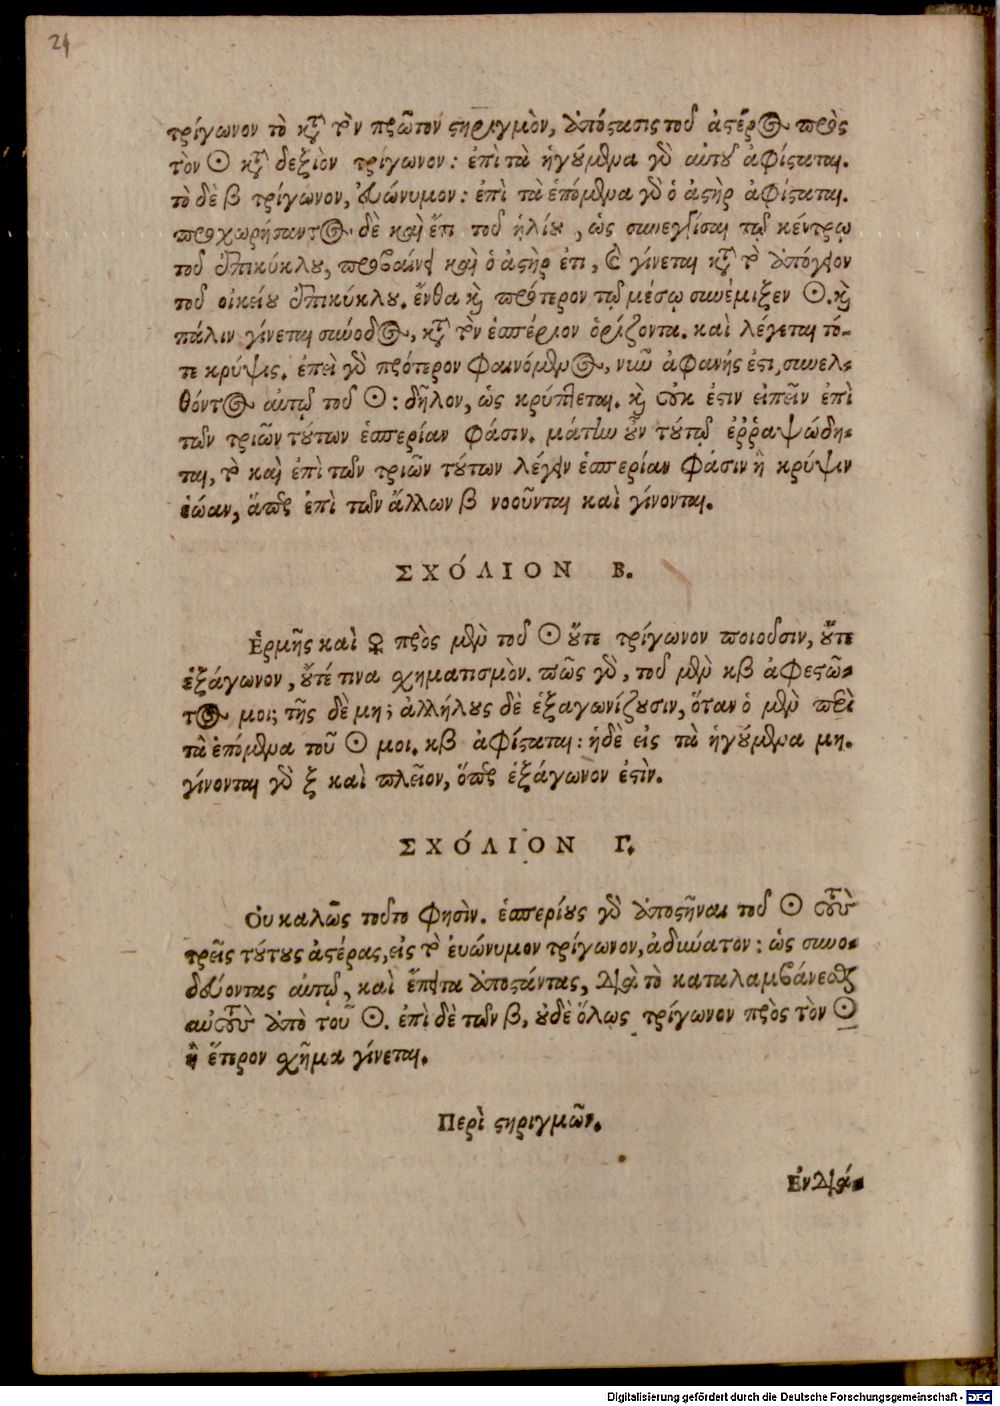 24
τρίγωνον τὸ κατὰ τὸν πρῶτον στηριγμὸν, ἀπόστασις τοῦ ἀστέρος πρὸς
τὸν ☉ κατὰ δεξιὸν τρίγωνον: ἐπὶ τὰ ἡγούμενα γὰρ αὐτοῦ ἀφίσταται.
τὸ δὲ β τρίγωνον, εὐώνυμον: ἐπὶ τὰ ἑπόμενα γὰρ ὁ ἀστὴρ ἀφίσταται.
προχωρήσαντος δὲ καὶ ἔτι τοῦ ἡλίου, ὡς συνεγγίσαι τῷ κέντρῳ
τοῦ ἐπικύκλου, προβαίνει καὶ ὁ ἀστὴρ ἔτι, καὶ γίνεται κατὰ τὸ ἀπόγειον
τοῦ οἰκείου ἐπικύκλου. ἔνθα καὶ πρότερον τῷ μέσῳ συνέμιξεν ☉. καὶ
πάλιν γίνεται σύνοδος, κατὰ τὸν ἑσπέριον ὁρίζοντα. καὶ λέγεται τό-
τε κρύψις. ἐπεὶ γὰρ πρότερον φαινόμενος, νῦν ἀφανής ἐστι, συνελ-
θόντος αὐτῷ τοῦ ☉: δῆλον, ὡς κρύπτεται. καὶ οὐκ ἔστιν εἰπεῖν ἐπὶ
τῶν τριῶν τούτων ἑσπερίαν φάσιν. μάτην οὖν τούτῳ ἐῤῥαψώδη-
ται, τὸ καὶ ἐπὶ τῶν τριῶν τούτων λέγειν ἑσπερίαν φάσιν ἢ κρύψιν
ἑώαν, ἅπερ ἐπὶ τῶν ἄλλων β νοοῦνται καὶ γίνονται.
ΣΧΌΛΙΟΝ Β.
Ἑρμῆς καὶ ♀ πρὸς μὲν τοῦ ☉ οὔτε τρίγωνον ποιοῦσιν, οὔτε
ἑξάγωνον, οὔτέ τινα σχηματισμὸν. πῶς γὰρ, τοῦ μὲν κβ ἀφεστῶ-
τος μοι; τῆς δὲ μη; ἀλλήλους δὲ ἑξαγωνίζουσιν, ὅταν ὁ μὲν περὶ
τὰ ἑπόμενα τοῦ ☉ μοι. κβ ἀφίσταται: ἡδὲ εἰς τὰ ἡγούμενα μη.
γίνονται γὰρ ξ καὶ πλεῖον, ὅπερ ἑξάγωνον ἐστὶν.
ΣΧΌΛΙΟΝ Γ.
Οὐ καλῶς τοῦτο φησὶν. ἑσπερίους γὰρ ἀποστῆναι τοῦ ☉ τοὺς
τρεῖς τούτους ἀστέρας, εἰς τὸ εὐώνυμον τρίγωνον, ἀδύνατον: ὡς συνο-
δεύοντας αὐτῷ, καὶ ἔπειτα ἀποστάντας, διὰ τὸ καταλαμβάνεσθαι
αὐτοὺς ἀπὸ τοῦ ☉. ἐπὶ δὲ τῶν β, οὐδὲ ὅλως τρίγωνον πρὸς τὸν ☉
ἢ ἕτερον σχῆμα γίνεται.
Περὶ στηριγμῶν.
Ἐν διά-
Digitalisierung gefördert durch die Deutsche Forschungsgemeinschaft - DFG